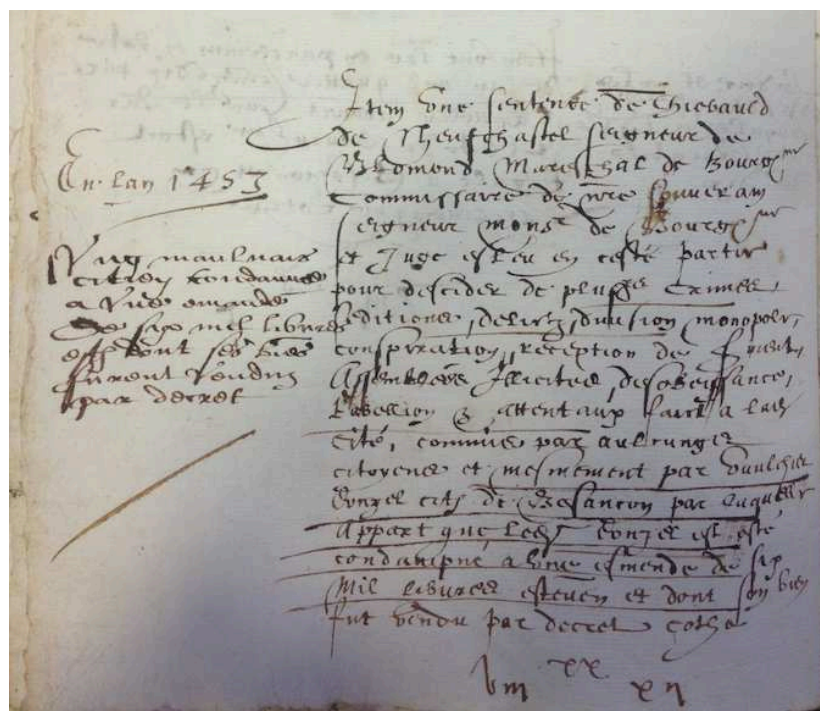 En lan 1453
Ung maulvais
citien condampne
a une emande
de six mil libvres
est dont ses biens
furent vendu
par decret
Item une sentence de Thiebauld
de Neufchastel seigneur de
Blamond Mareschal de Bourg
Commissaire de nre souverain
seigneur monsr de Bourg
et Juge esleu en ceste partie
pour descider de plusrs crimes,
seditions, delictz, division, monopole,
conspiration, reception de
Assemblees Illicites, desobeissance,
Rebellion & attentaux faict a lad
cité, commis par aulcunges
citoyens et mesmement par Vaulchier
Bonzel citn de Besancon par laquelle
Appart que led Bonzel est esté
condampné a une esmende de six
Mil libvres esteven et dont son bien
fut vendu par decret cothe
viii xx xii